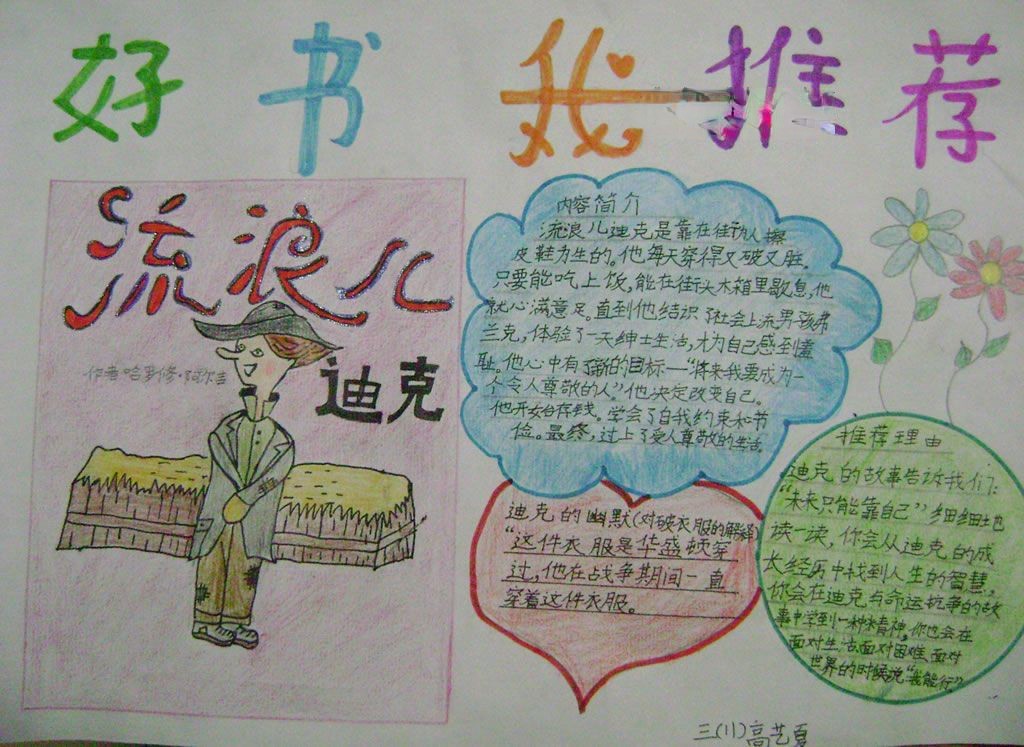 好书我推荐
流浪儿
迪克
作者哈罗修·阿尔吉
内容简介
流浪儿迪克是靠在街边人擦
皮鞋为生的。他每天穿得又破又脏。
只要能吃上饭,能在街头木箱里歇息,他
就心满意足。直到他结识了社会上流男孩弗
兰克,体验了一天绅士生活,才为自己感到羞
耻。他心中有了新的目标——“将来我要成为一
个令人尊敬的人”他决定改变自己。
他开始存钱。学会了自我约束和节
俭。最终,过上了受人尊敬的生活。
迪克的幽默(对破衣服的解释)
“这件衣服是华盛顿穿
过,他在战争期间一直
穿着这件衣服。
推荐理由
迪克的故事告诉我们:
“未来只能靠自己”细细地
读一读,你会从迪克的成
长经历中找到人生的智慧,
你会在迪克与命运抗争的故
事中学到一种精神,你也会在
面对生活面对困难面对
世界的时候说“我能行”
三(11)高艺夏